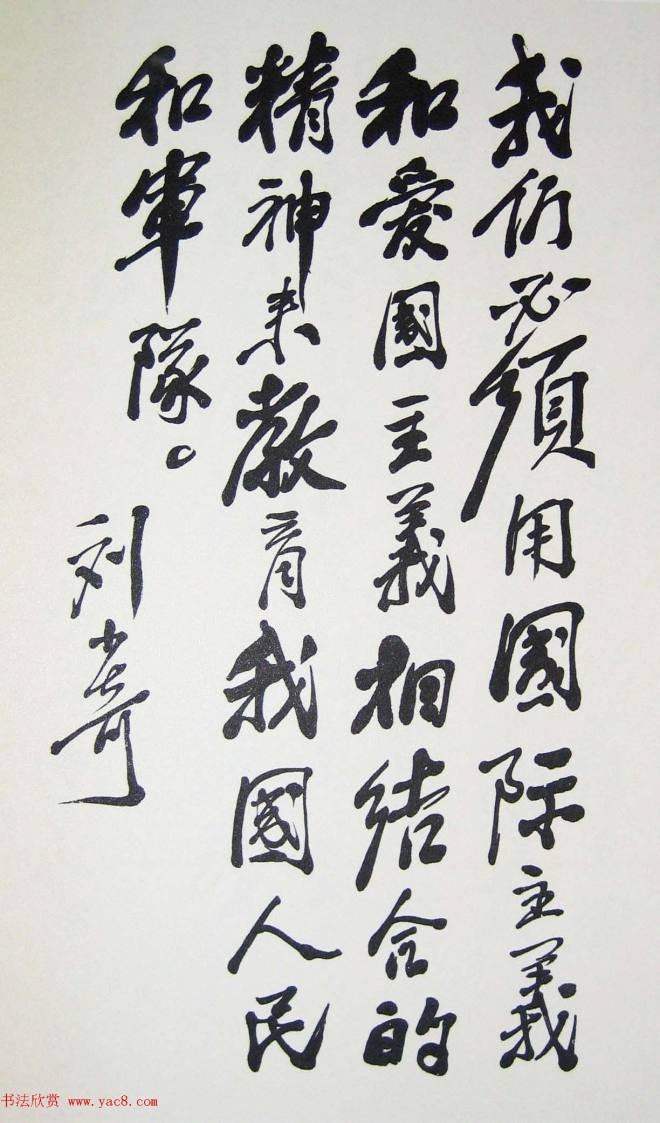 我们必须用國际主義
和愛國主義相结合的
精神来教育我國人民
和軍隊。
刘少奇
书法欣赏 www.yac8.com